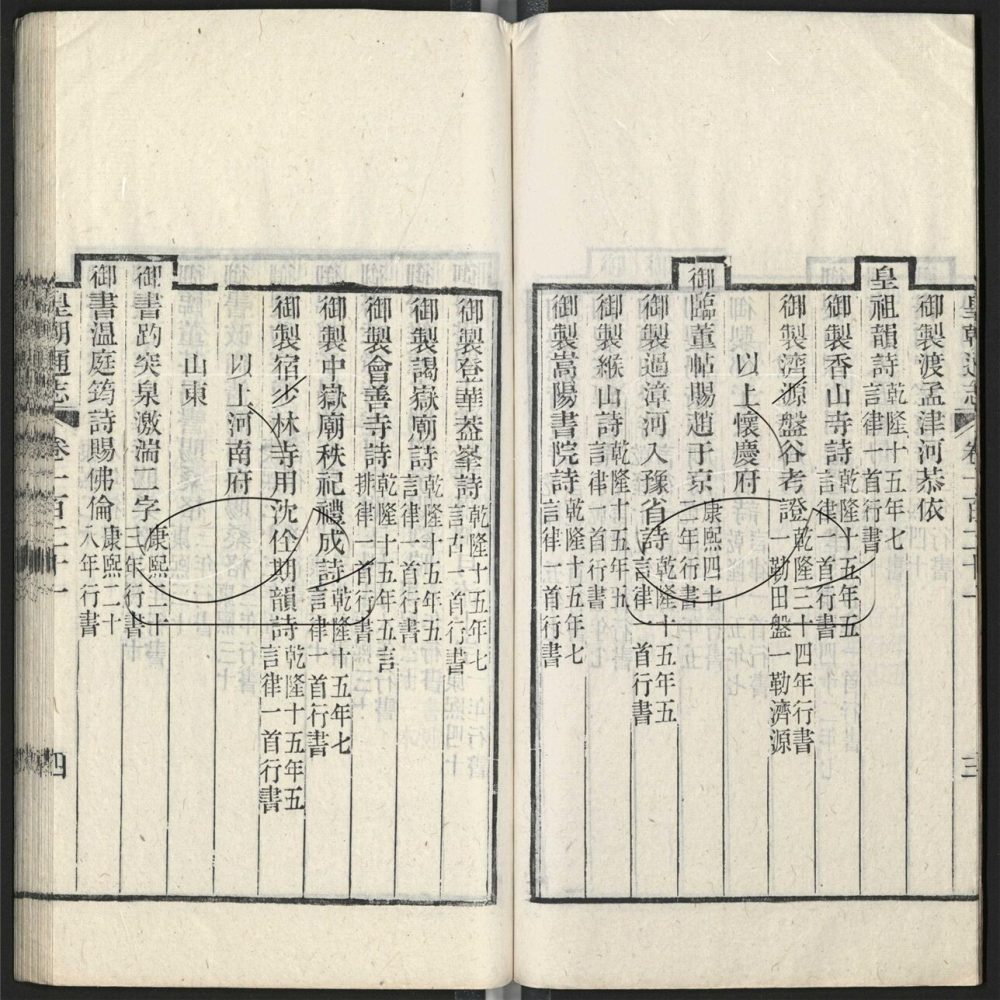 御製渡孟津河恭依
皇祖韻詩乾隆十五年七言律一首行書
御製香山寺詩乾隆十五年五言律一首行書
御製濟源盤谷考證乾隆三十四年行書一勒田盤一勒濟源
以上懷慶府
御臨董帖賜趙于京康熙四十二年行書
御製過漳河入豫省詩乾隆十五年五言律一首行書
御製緱山詩乾隆十五年五言律一首行書
御製嵩陽書院詩乾隆十五年七言律一首行書
御製登華葢峯詩乾隆十五年七言古一首行書
御製謁嶽廟詩乾隆十五年五言律一首行書
御製會善寺詩乾隆十五年五言排律一首行書
御製中嶽廟秩祀禮成詩乾隆十五年七言律一首行書
御製宿少林寺用沈佺期韻詩乾隆十五年五言律一首行書
以上河南府
山東
御書趵突泉激湍二字康熙二十三年行書
御書溫庭筠詩賜佛倫康熙二十八年行書
皇朝通志 卷一百二十一 四